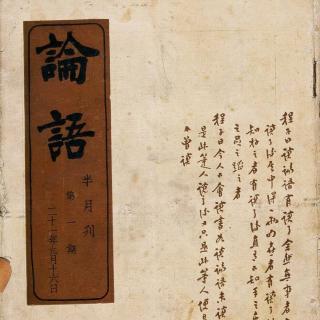 程子曰讀論語有讀了全然無事者
讀了後其中得一兩句喜者有讀了
知好之者有讀了後直有不知手之
足之蹈之者
程子曰今人不會讀書如讀論語未讀
是此等人讀了後又只是此等人便是
不曾讀
論語
半月刊
第一期
二十一年九月十六日